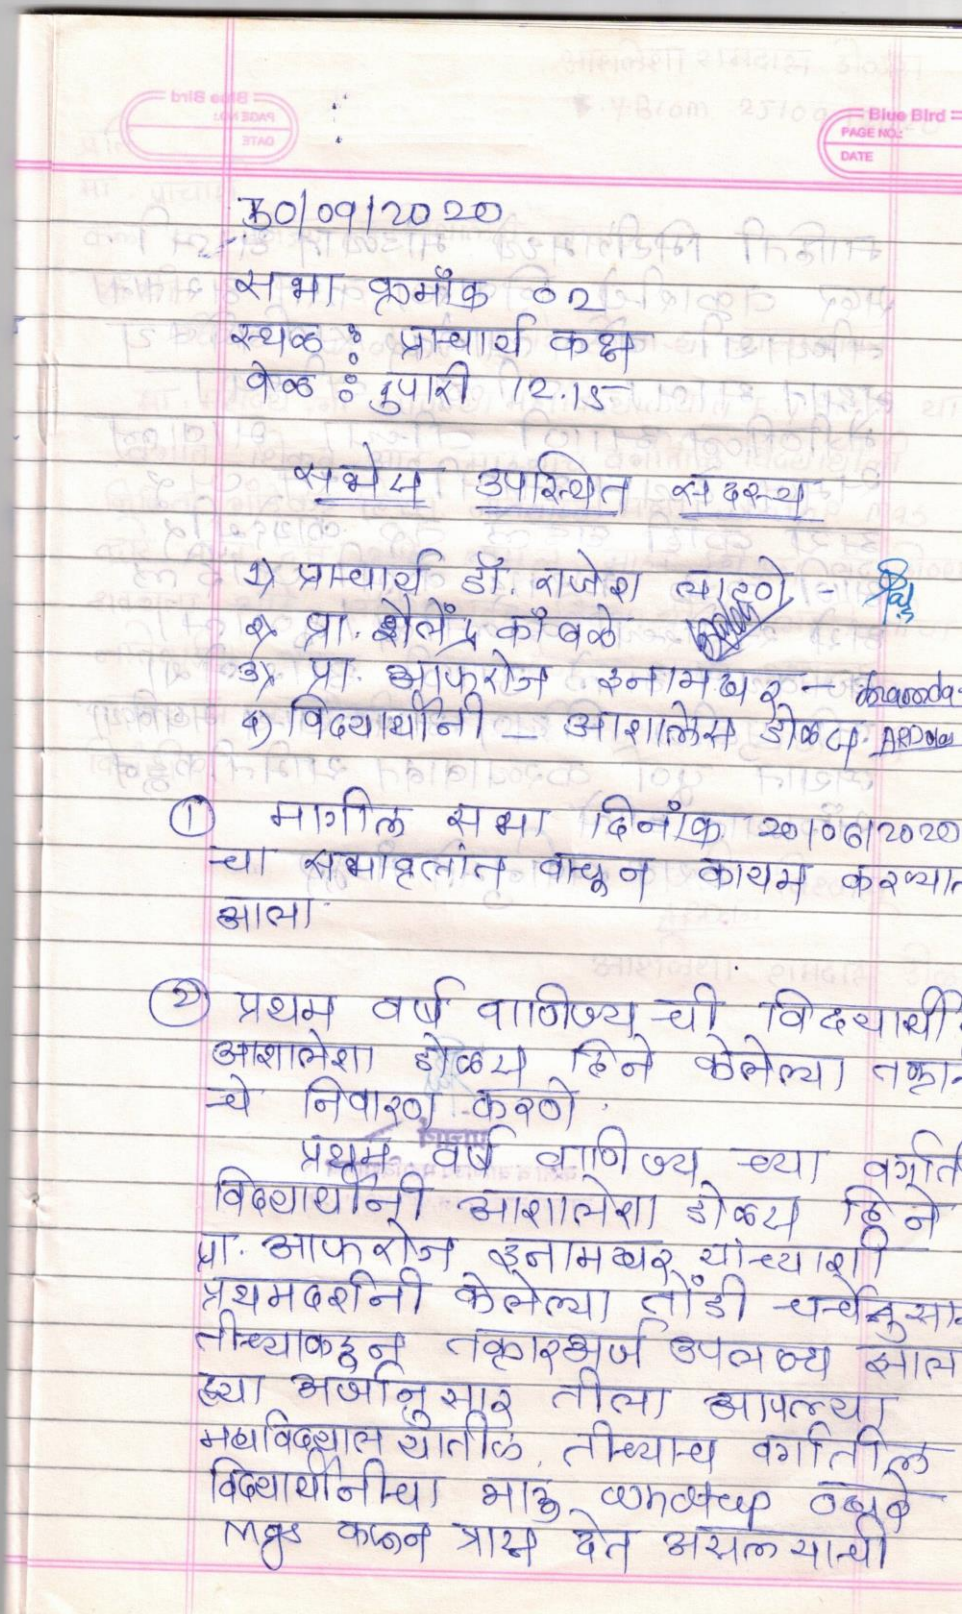 Blue Bird
PAGE NO.:
DATE
30/09/2020
सभा क्रमाँक 02
स्थळ : प्राचार्य कक्ष
वेळ : दुपारी 12.15
सभेस उपस्थित सदस्य
1) प्राचार्य डॉ. राजेश
2) प्रा. शैलेंद्र कांबळे
3) प्रा. आफरोज इनामदार -
4) विदयार्थीनी - आशालेस डोळस
① मागील सभा दिनाँक 20/06/2020
चा सभावृत्तांत वाचून कायम करण्यात
आला.
② प्रथम वर्ष वाणिज्य ची विदयार्थी
आशालेशा डोळस हिने केलेल्या तक्रा
चे निवारण करणे.
प्रथम वर्ष वाणिज्य च्या वर्गाती
विदयार्थीनी आशालेशा डोळस हिने
प्रा. आफरोज इनामदार यांच्याशी
प्रथमदर्शनी केलेल्या तोंडी चर्चेनुसार
तीच्याकडून तक्रारअर्ज उपलब्ध झाला
ह्या अर्जानुसार तीला आपल्या
महाविद्यालयातील, तीच्याच वर्गातील
विदयार्थीनीचा भाऊ whatsup व्दारे
Msgs करून त्रास देत असल्याची